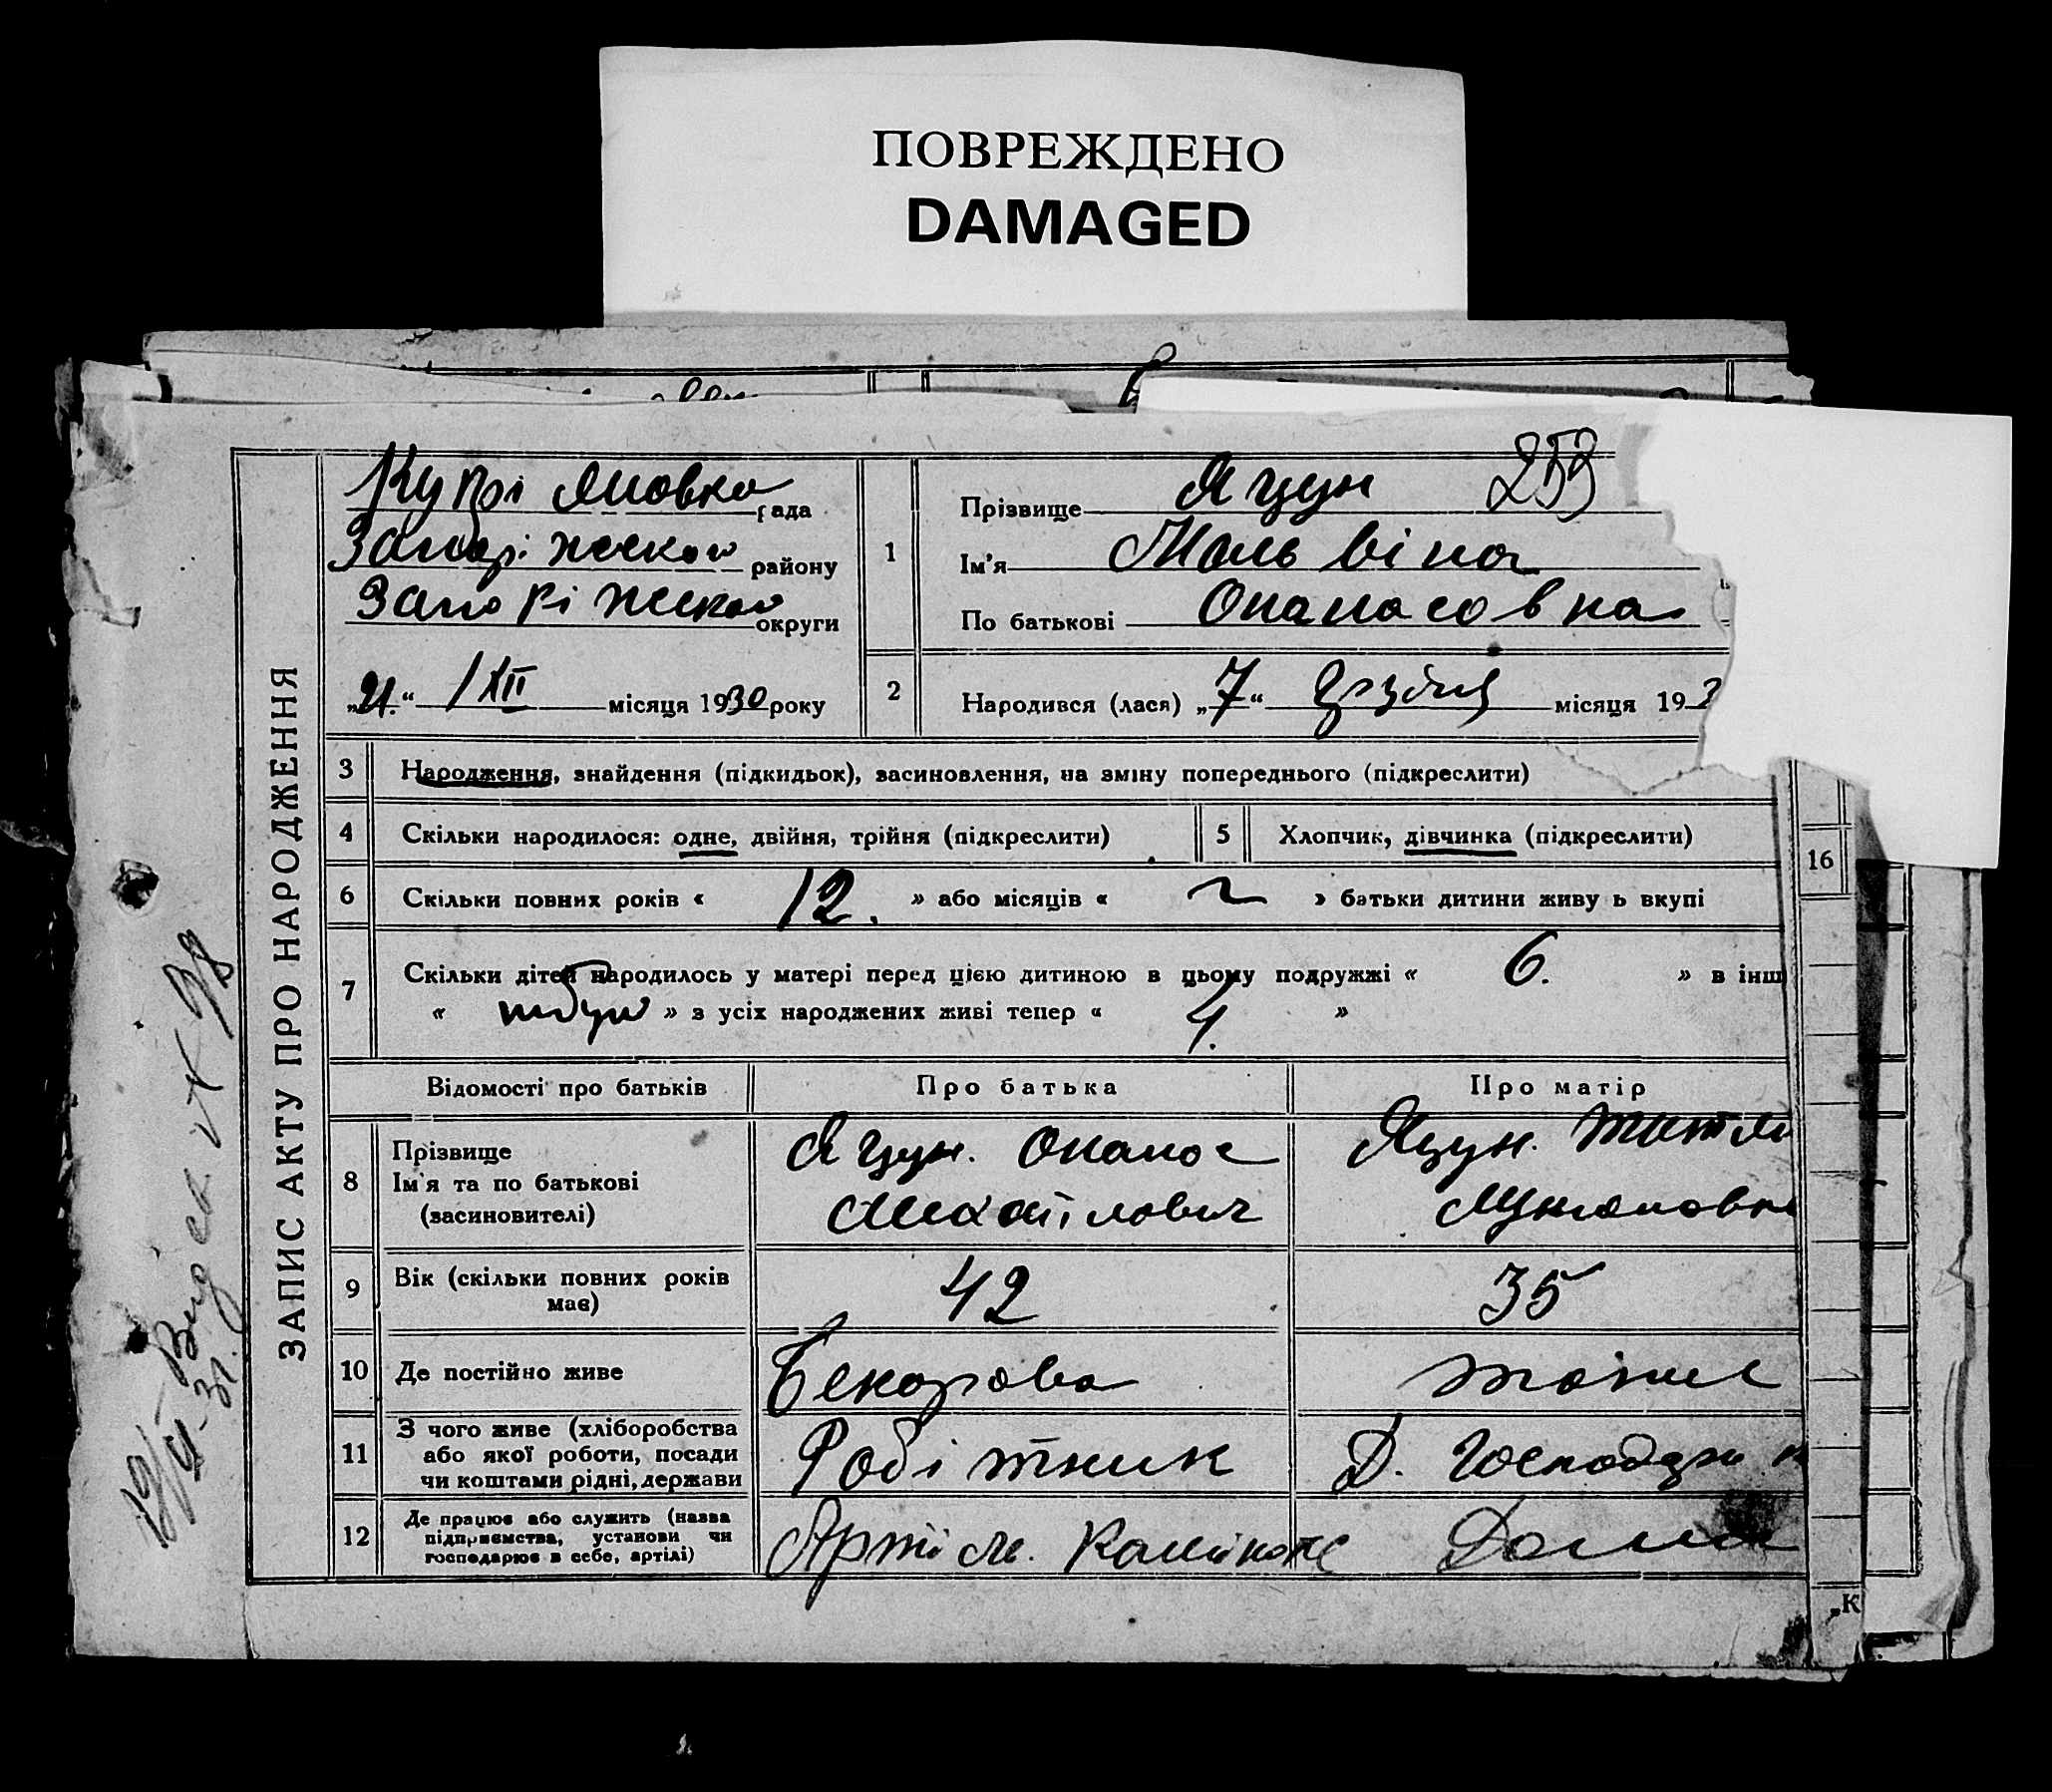 ПОВРЕЖДЕНО
DAMAGED
ЗАПИС АКТУ ПРО НАРОДЖЕННЯ
Купріяновка рада
Запоріжского району
Запоріжского округи
„21.“ /XII місяця 1930 року
1
Прізвище Яцун 259
Ім'я Мальвіна
По батькові Опанасовна
2 Народився (лася) „7“ грудня місяця 193
3 Народження, знайдення (підкидьок), засиновлення, на зміну попереднього (підкреслити)
4 Скільки народилося: одне, двійня, трійня (підкреслити) 5 Хлопчик, дівчинка (підкреслити)
16
6 Скільки повних років « 12. » або місяців « » батьки дитини живу ь вкупі
7 Скільки дітей народилось у матері перед цією дитиною в цьому подружжі « 6. » в інш
« » з усіх народжених живі тепер « 4. »
Відомості про батьків Про батька Про матір
8 Прізвище
Ім'я та по батькові
(засиновителі)
Яцун. Опанас
Михайлович
Яцун.
9 Вік (скільки повних років має) 42 35
10 Де постійно живе тоже
11 З чого живе (хліборобства
або якої роботи, посади
чи коштами рідні, держави
Робітник
Д. Господар
12 Де працює або служить (назва
підприємства, установи чи
господарює в себе, артілі)
Артіль. Дома
„К